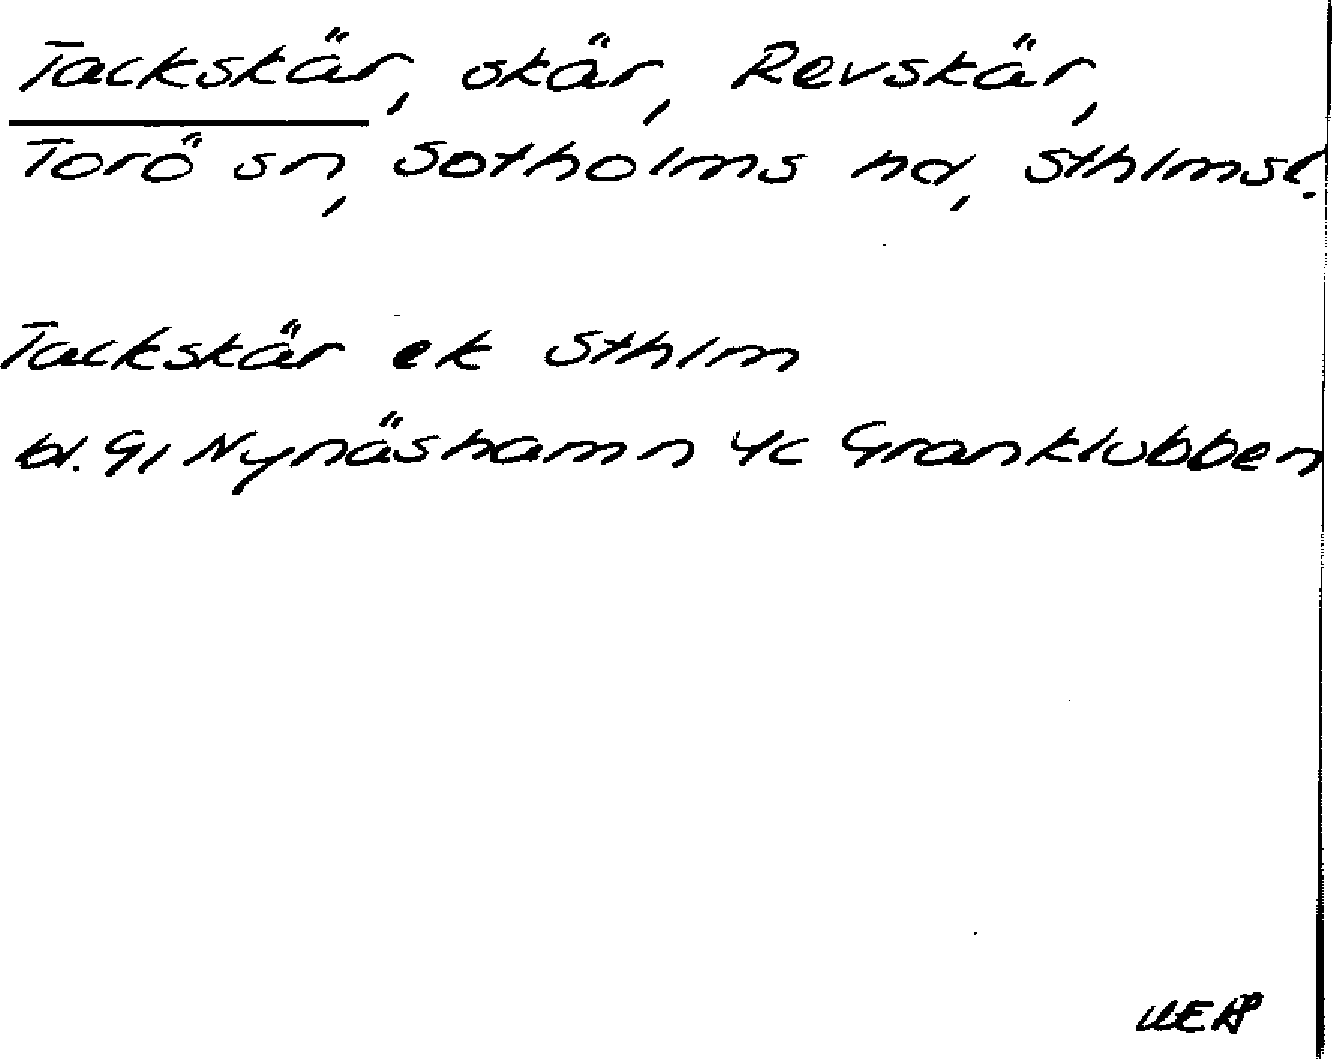 Tackskär, skär, Revskär,
Torö sn, Sotholms hd, Sthlmsl.
Tackskär ek Sthlm
bl. 91 Nynäshamn 4c Granklubben